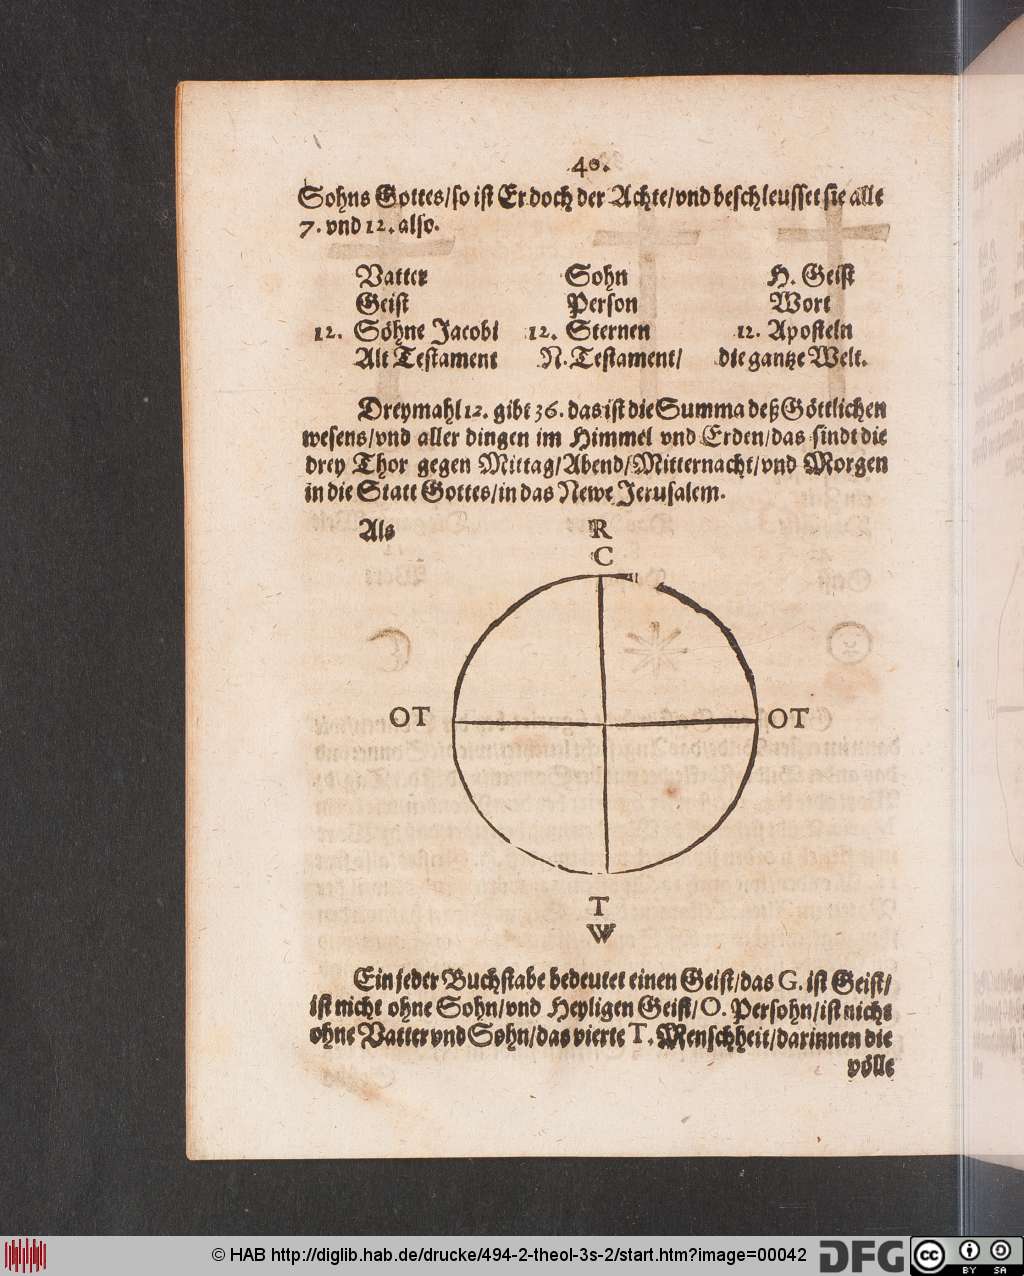 40.
Sohns Gottes/so ist Er doch der Achte/vnd beschleusset sie alle
7. vnd 12. also.
Vatter Sohn H. Geist
Geist Person Wort
12. Söhne Jacobi 12. Sternen 12. Aposteln
Alt Testament N. Testament/ die gantze Welt.
Dreymahl 12. gibt 36. das ist die Summa deß Göttlichen
wesens/vnd aller dingen im Himmel vnd Erden/das sindt die
drey Thor gegen Mittag/Abend/Mitternacht/vnd Morgen
in die Statt Gottes/in das Newe Jerusalem.
Als R
C
OT OT
T
W
Ein jeder Buchstabe bedeutet einen Geist/das G. ist Geist/
ist nicht ohne Sohn/vnd Heyligen Geist/O. Persohn/ist nichs
ohne Vatter vnd Sohn/das vierte T. Menschheit/darinnen die
völle
© HAB http://diglib.hab.de/drucke/494-2-theol-3s-2/start.htm?image=00042 DFG cc BY SA